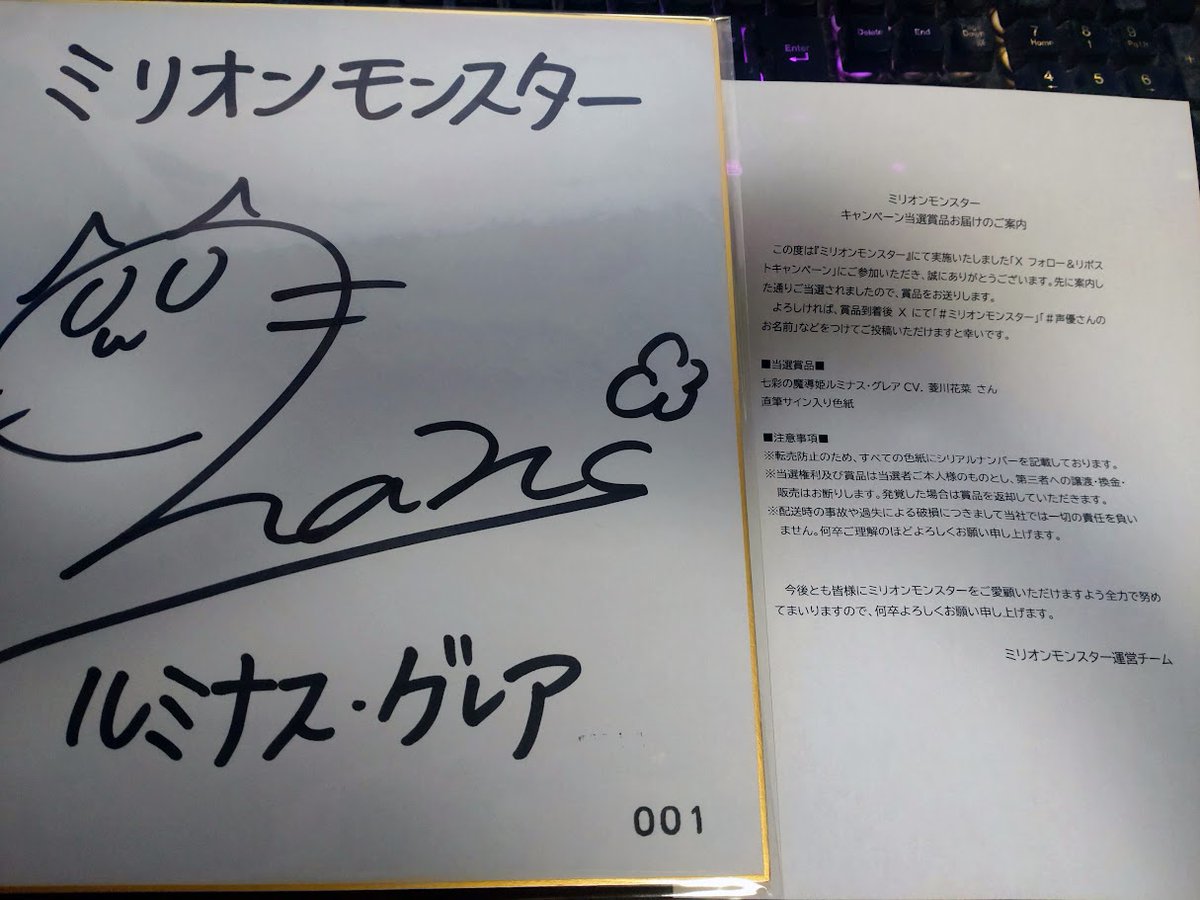 ミリオンモンスター
hana
ルミナス・グレア
001
Enter
Delete
End
7
Home
8
9
4
5
6
ミリオンモンスター
キャンペーン当選賞品お届けのご案内
この度は『ミリオンモンスター』にて実施いたしました「X フォロー&リポス
トキャンペーン」にご参加いただき、誠にありがとうございます。先に案内し
た通りご当選されましたので、賞品をお送りします。
よろしければ、賞品到着後 X にて「#ミリオンモンスター」「#声優さんの
お名前」などをつけてご投稿いただけますと幸いです。
■当選賞品■
七彩の魔導姫ルミナス・グレア CV. 菱川花菜 さん
直筆サイン入り色紙
■注意事項■
※転売防止のため、すべての色紙にシリアルナンバーを記載しております。
※当選権利及び賞品は当選者ご本人様のものとし、第三者への譲渡・換金・
販売はお断りします。発覚した場合は賞品を返却していただきます。
※配送時の事故や過失による破損につきまして当社では一切の責任を負い
ません。何卒ご理解のほどよろしくお願い申し上げます。
今後とも皆様にミリオンモンスターをご愛顧いただけますよう全力で努め
てまいりますので、何卒よろしくお願い申し上げます。
ミリオンモンスター運営チーム